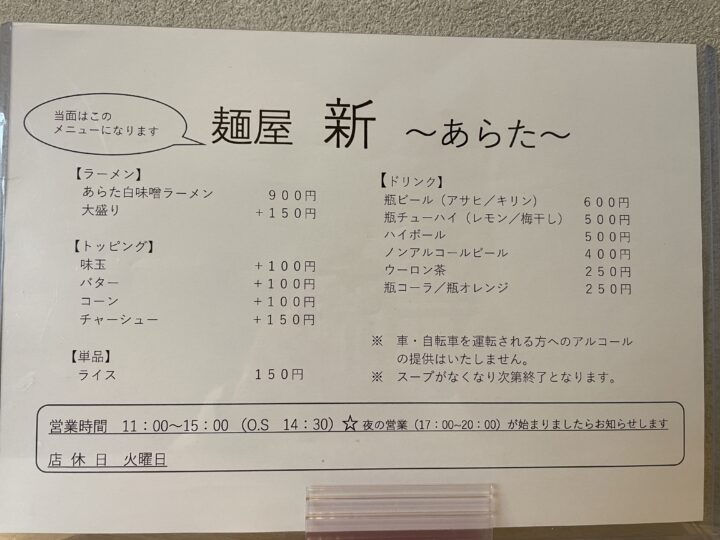 当面はこの
メニューになります
麺屋 新 ～あらた～
【ラーメン】
あらた白味噌ラーメン 900円
大盛り +150円
【トッピング】
味玉 +100円
バター +100円
コーン +100円
チャーシュー +150円
【単品】
ライス 150円
【ドリンク】
瓶ビール（アサヒ／キリン） 600円
瓶チューハイ（レモン／梅干し） 500円
ハイボール 500円
ノンアルコールビール 400円
ウーロン茶 250円
瓶コーラ／瓶オレンジ 250円
※ 車・自転車を運転される方へのアルコール
の提供はいたしません。
※ スープがなくなり次第終了となります。
営業時間 11：00～15：00 （O.S 14：30）☆夜の営業（17：00~20：00）が始まりましたらお知らせします
店 休 日 火曜日